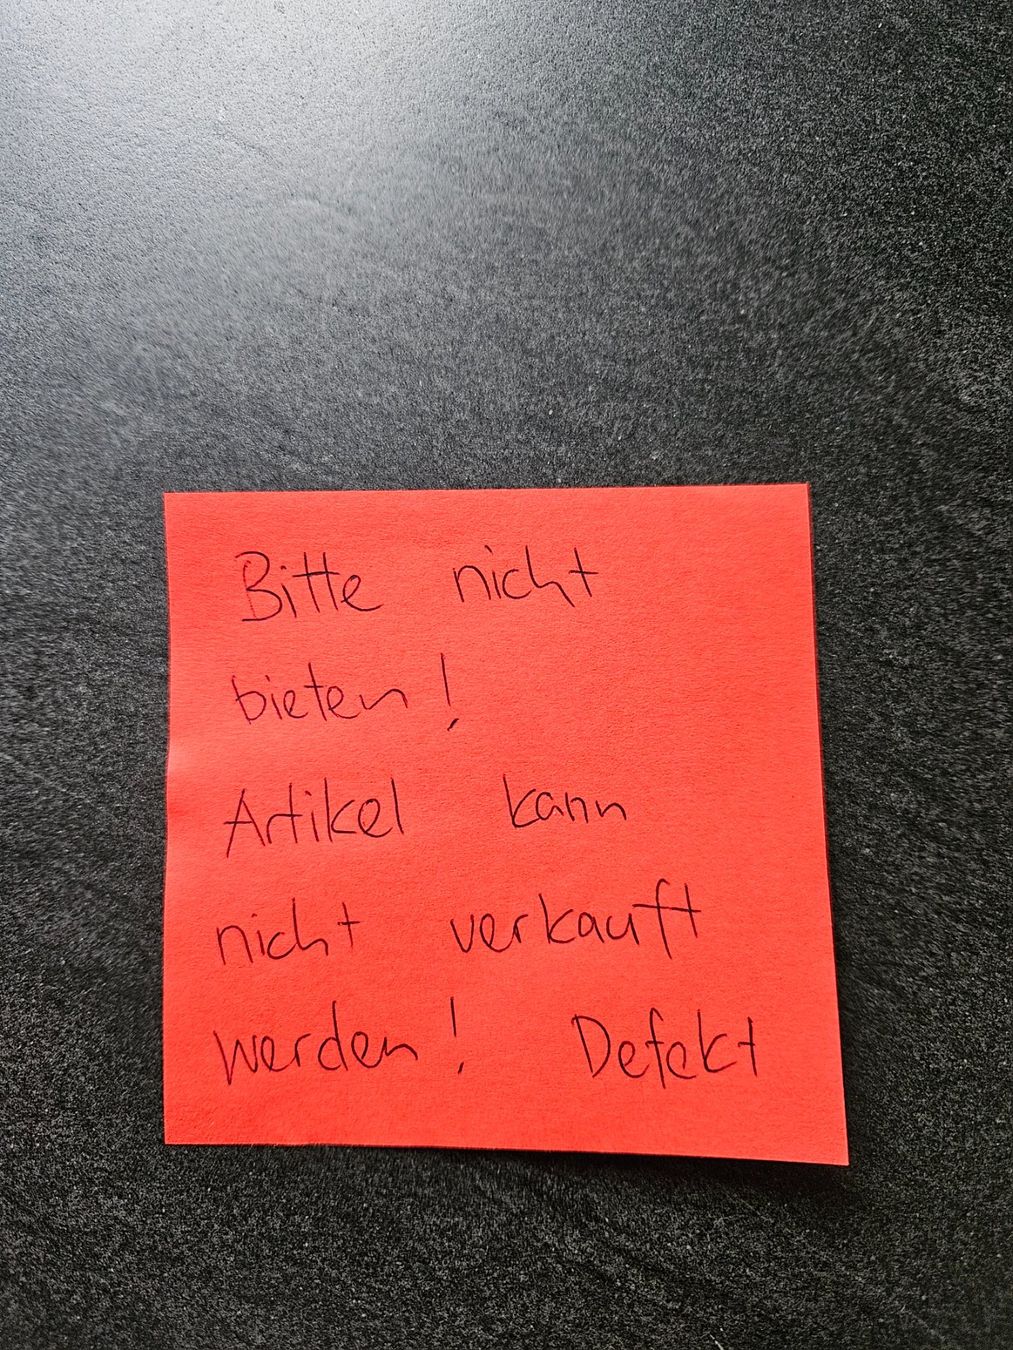 Bitte nicht
bieten!
Artikel kann
nicht verkauft
werden! Defekt